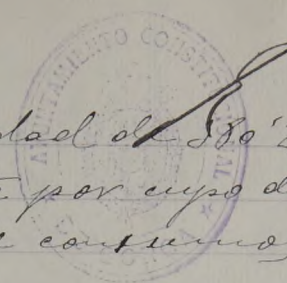 AYUNTAMIENTO CONSTITUCIONAL
dad de 380'
por cupo d
consumos